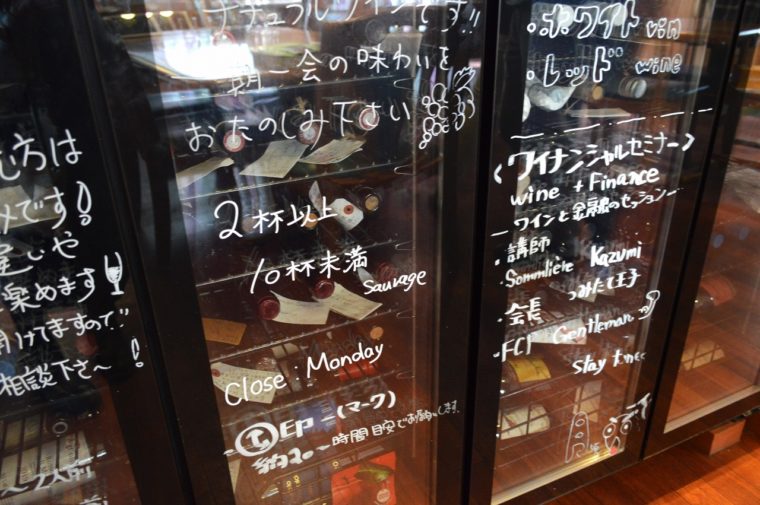 む方は
みです!
違いや
楽めます
開けてますので!!
相談下さ〜い
〜2人前
ナチュラルワインです!!
一期一会の味わいを
おたのしみ下さい
2杯以上
10杯未満
Sauvage
Close : Monday
印 = (マーク)
約2〜
時間目安でお願いします
・ホワイト vin
・レッド wine
<ワイナンシャルセミナー>
wine + Finance
ーワインと金融のセッションー
・講師
・Sommliere Kazumi
・会長 つみたて王子
・FCI Gentleman
Stay tune